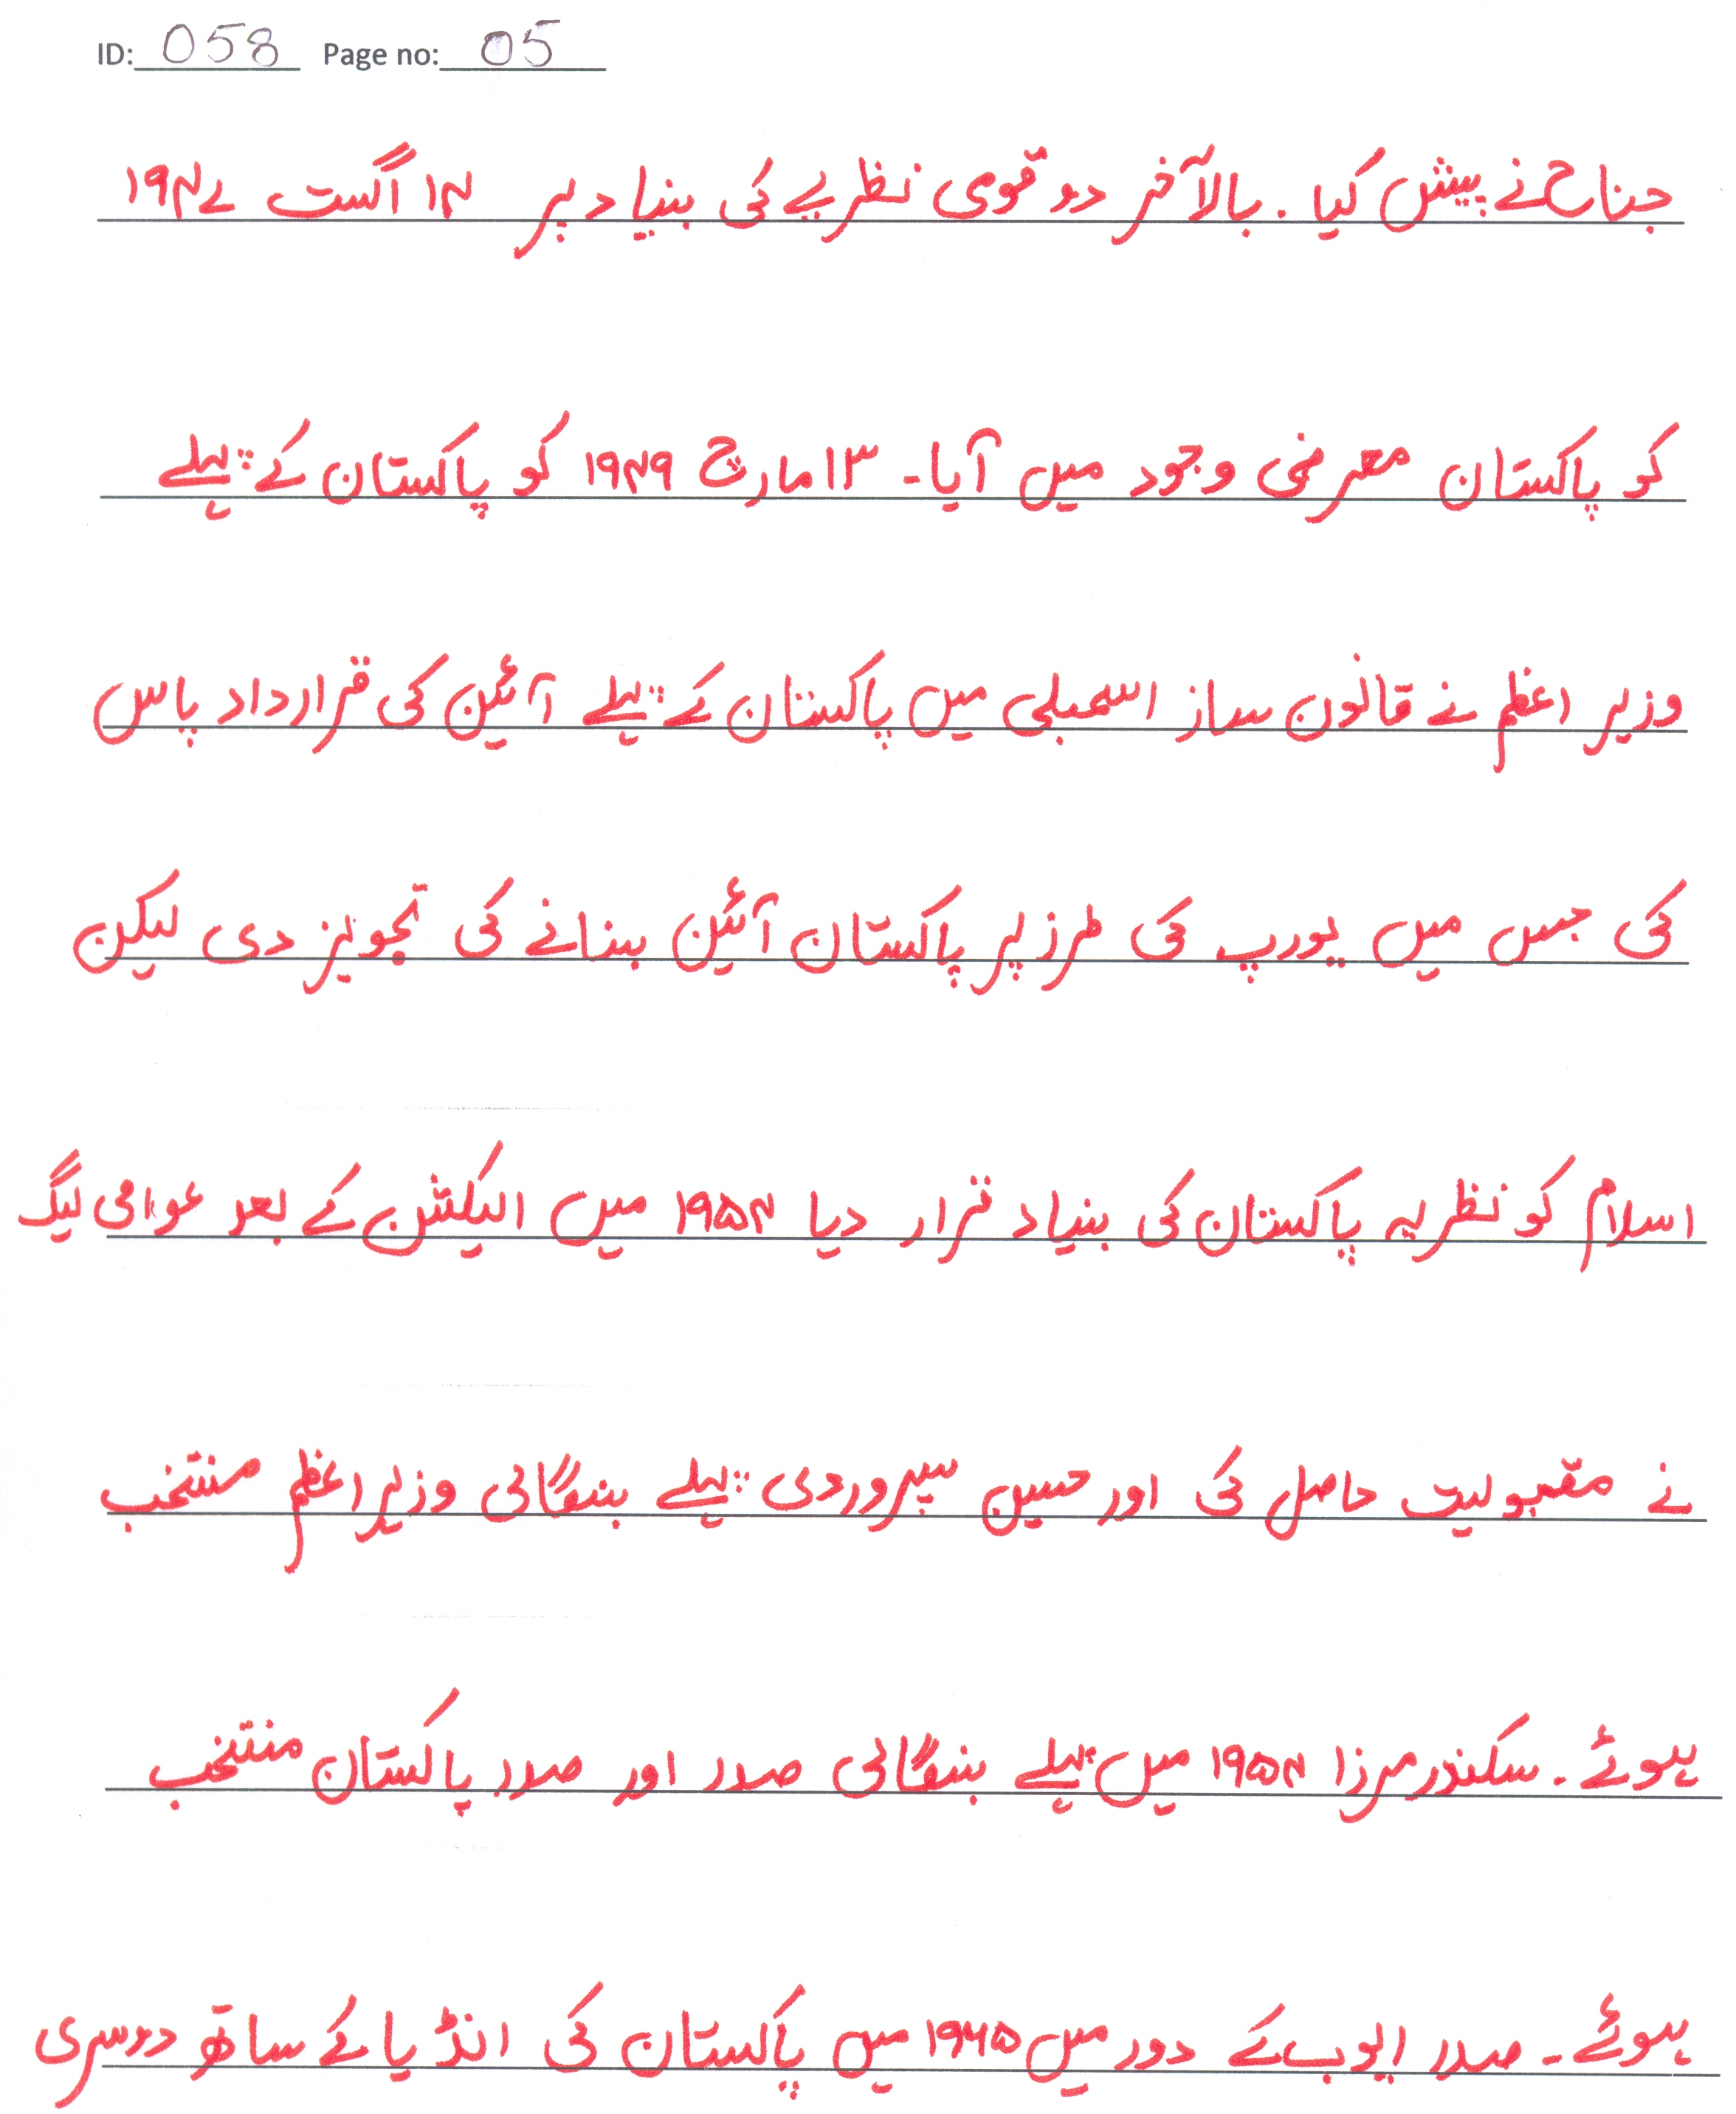 ID: 058 Page no: 05
جناح نے پیش کیا۔ بالآخر دو قومی نظریے کی بنیاد پر ۱۴ اگست ۱۹۴۷
کو پاکستان معرضی وجود میں آیا۔ ۱۳ مارچ ۱۹۴۹ کو پاکستان کے پہلے
وزیر اعظم نے قانون ساز اسمبلی میں پاکستان کے پہلے آئین کی قرارداد پاس
کی جس میں یورپ کی طرز پر پاکستان آئین بنانے کی تجویز دی لیکن
اسلام کو نظریہ پاکستان کی بنیاد قرار دیا ۱۹۵۴ میں الیکشن کے بعد عوامی لیگ
نے مقبولیت حاصل کی اور حسین سہروردی پہلے بنگالی وزیر اعظم منتخب
ہوئے۔ سکندر مرزا ۱۹۵۴ میں پہلے بنگالی صدر اور صدر پاکستان منتخب
ہوئے۔ صدر ایوب کے دور میں ۱۹۶۵ میں پاکستان کی انڈیا کے ساتھ دوسری